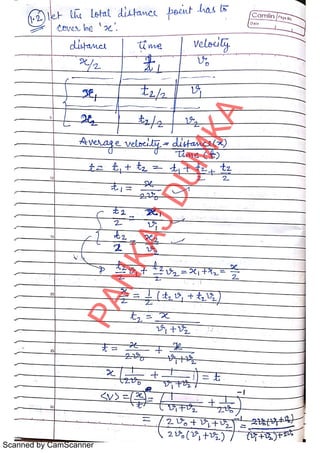 Camlin Page No.
Date
1.2 let the total distance point has to
cover be 'x'.
distance time velocity
x/2 t₁ v₀
x₁ t₂/2 v₁
x₂ t₂/2 v₂
Average velocity = distance(x) / Time (t)
t = t₁ + t₂ = t₁ + t₂/2 + t₂/2
t₁ = x/2v₀
t₂/2 = x₁/v₁
t₂/2 = x₂/v₂
t₂/2 v₁ + t₂/2 v₂ = x₁+x₂ = x/2
x/2 = 1/2 (t₂v₁ + t₂v₂)
t₂ = x/v₁+v₂
t = x/2v₀ + x/v₁+v₂
x (1/2v₀ + 1/v₁+v₂) = t
<v> = (x/t) = (1/v₁+v₂ + 1/2v₀)⁻¹
= (2v₀+v₁+v₂ / 2v₀(v₁+v₂))⁻¹ = 2v₀(v₁+v₂) / (v₁+v₂)+2v₀
PANKAJ DUMKA
Scanned by CamScanner